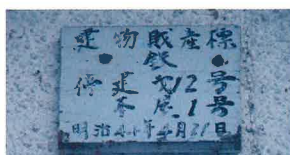 建物財産標
鉄
停 建 12号
本屋 1号
明治44年4月21日